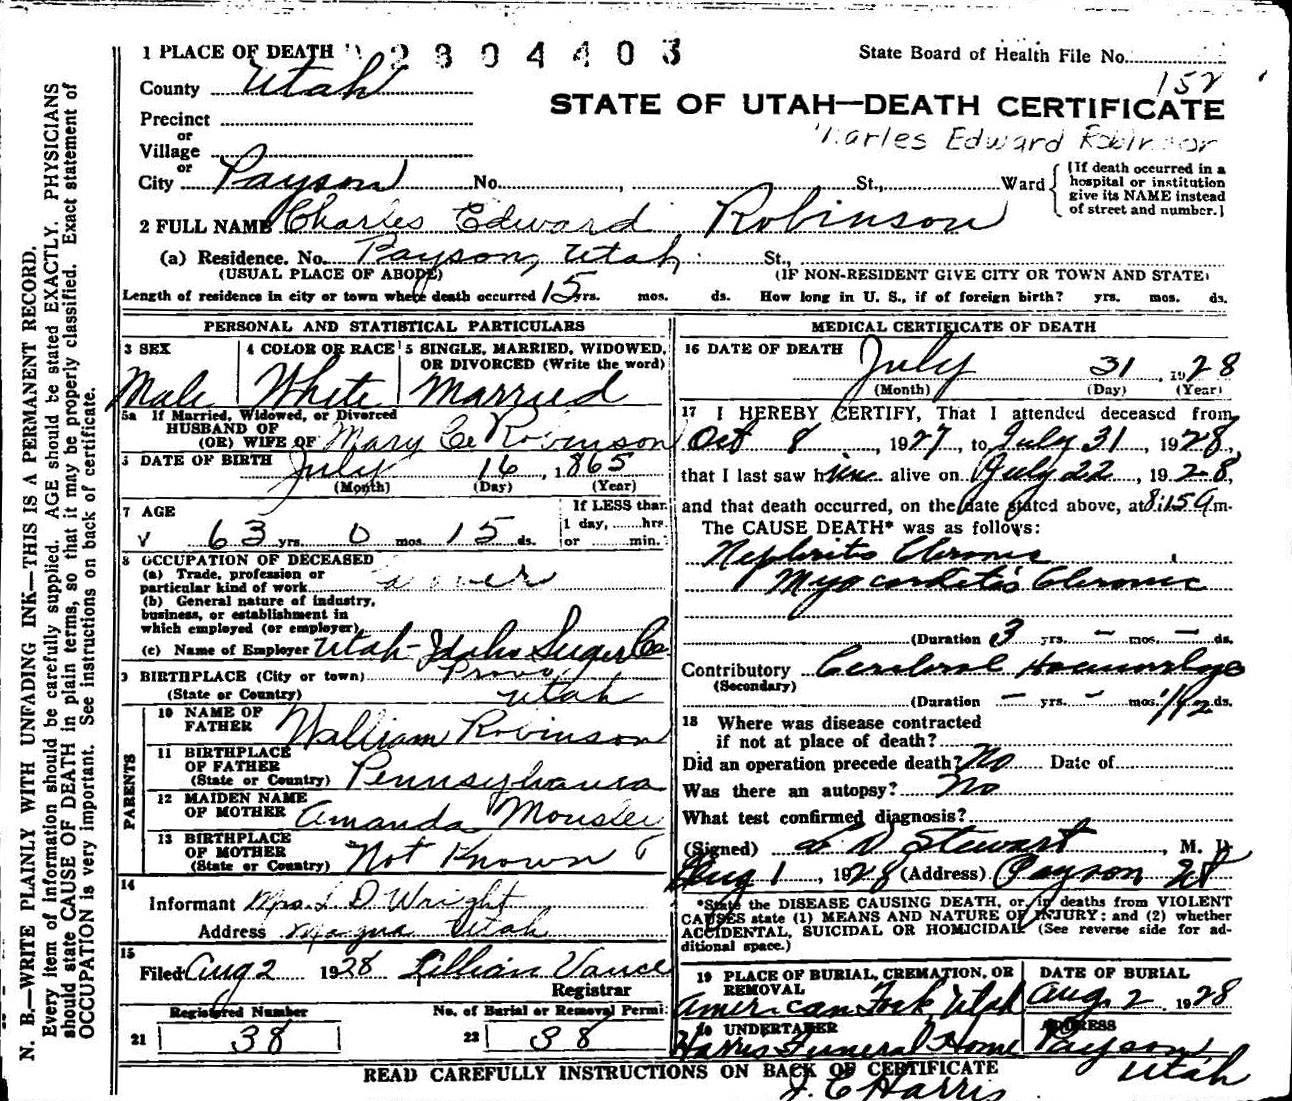 1 PLACE OF DEATH 2804403
State Board of Health File No.
152
County Utah
STATE OF UTAH—DEATH CERTIFICATE
Precinct
or
Village
Charles Edward Robinson
or
City Payson No. , St., Ward
[If death occurred in a
hospital or institution
give its NAME instead
of street and number.]
2 FULL NAME Charles Edward Robinson
(a) Residence. No. Payson, Utah St.,
(USUAL PLACE OF ABODE) (IF NON-RESIDENT GIVE CITY OR TOWN AND STATE)
Length of residence in city or town where death occurred 15 yrs. mos. ds. How long in U. S., if of foreign birth? yrs. mos. ds.
PERSONAL AND STATISTICAL PARTICULARS
3 SEX 4 COLOR OR RACE 5 SINGLE, MARRIED, WIDOWED,
OR DIVORCED (Write the word)
Male White Married
5a If Married, Widowed, or Divorced
HUSBAND OF
(OR) WIFE OF Mary Robinson
DATE OF BIRTH July 16, 1865
(Month) (Day) (Year)
7 AGE If LESS than
1 day, hrs.
63 yrs. 0 mos. 15 ds. or min.
8 OCCUPATION OF DECEASED
(a) Trade, profession or
particular kind of work
(b) General nature of industry,
business, or establishment in
which employed (or employer)
(c) Name of Employer Utah-Idaho Sugar Co
9 BIRTHPLACE (City or town) Provo
(State or Country) Utah
PARENTS
10 NAME OF
FATHER William Robinson
11 BIRTHPLACE
OF FATHER
(State or Country) Pennsylvania
12 MAIDEN NAME
OF MOTHER Amanda
13 BIRTHPLACE
OF MOTHER
(State or Country) Not Known
14
Informant Mrs L D Wright
Address Magna Utah
15
Filed Aug 2 1928 Lillian Vance
Registrar
Registered Number No. of Burial or Removal Permit
21 38 22 38
MEDICAL CERTIFICATE OF DEATH
16 DATE OF DEATH July 31, 1928
(Month) (Day) (Year)
17 I HEREBY CERTIFY, That I attended deceased from
Oct 8, 1927, to July 31, 1928,
that I last saw him alive on July 22, 1928,
and that death occurred, on the date stated above, at 8:15 A m.
The CAUSE DEATH* was as follows:
Nephritis Chronic
Myocarditis Chronic
(Duration 3 yrs. – mos. – ds.
Contributory Cerebral Haemorhage
(Secondary)
(Duration – yrs. – mos. 1/2 ds.
18 Where was disease contracted
if not at place of death?
Did an operation precede death? No Date of
Was there an autopsy? No
What test confirmed diagnosis?
(Signed) L D Stewart, M. D.
Aug 1, 1928 (Address) Payson Ut
*State the DISEASE CAUSING DEATH, or, in deaths from VIOLENT
CAUSES state (1) MEANS AND NATURE OF INJURY; and (2) whether
ACCIDENTAL, SUICIDAL OR HOMICIDAL (See reverse side for ad-
ditional space.)
19 PLACE OF BURIAL, CREMATION, OR
REMOVAL
American Fork, Utah
DATE OF BURIAL
Aug. 2 1928
20 UNDERTAKER ADDRESS
Harris Funeral Home Payson
Utah
J. C Harris
READ CAREFULLY INSTRUCTIONS ON BACK OF CERTIFICATE
N. B.—WRITE PLAINLY WITH UNFADING INK—THIS IS A PERMANENT RECORD.
Every item of information should be carefully supplied. AGE should be stated EXACTLY. PHYSICIANS
should state CAUSE OF DEATH in plain terms, so that it may be properly classified. Exact statement of
OCCUPATION is very important. See instructions on back of certificate.